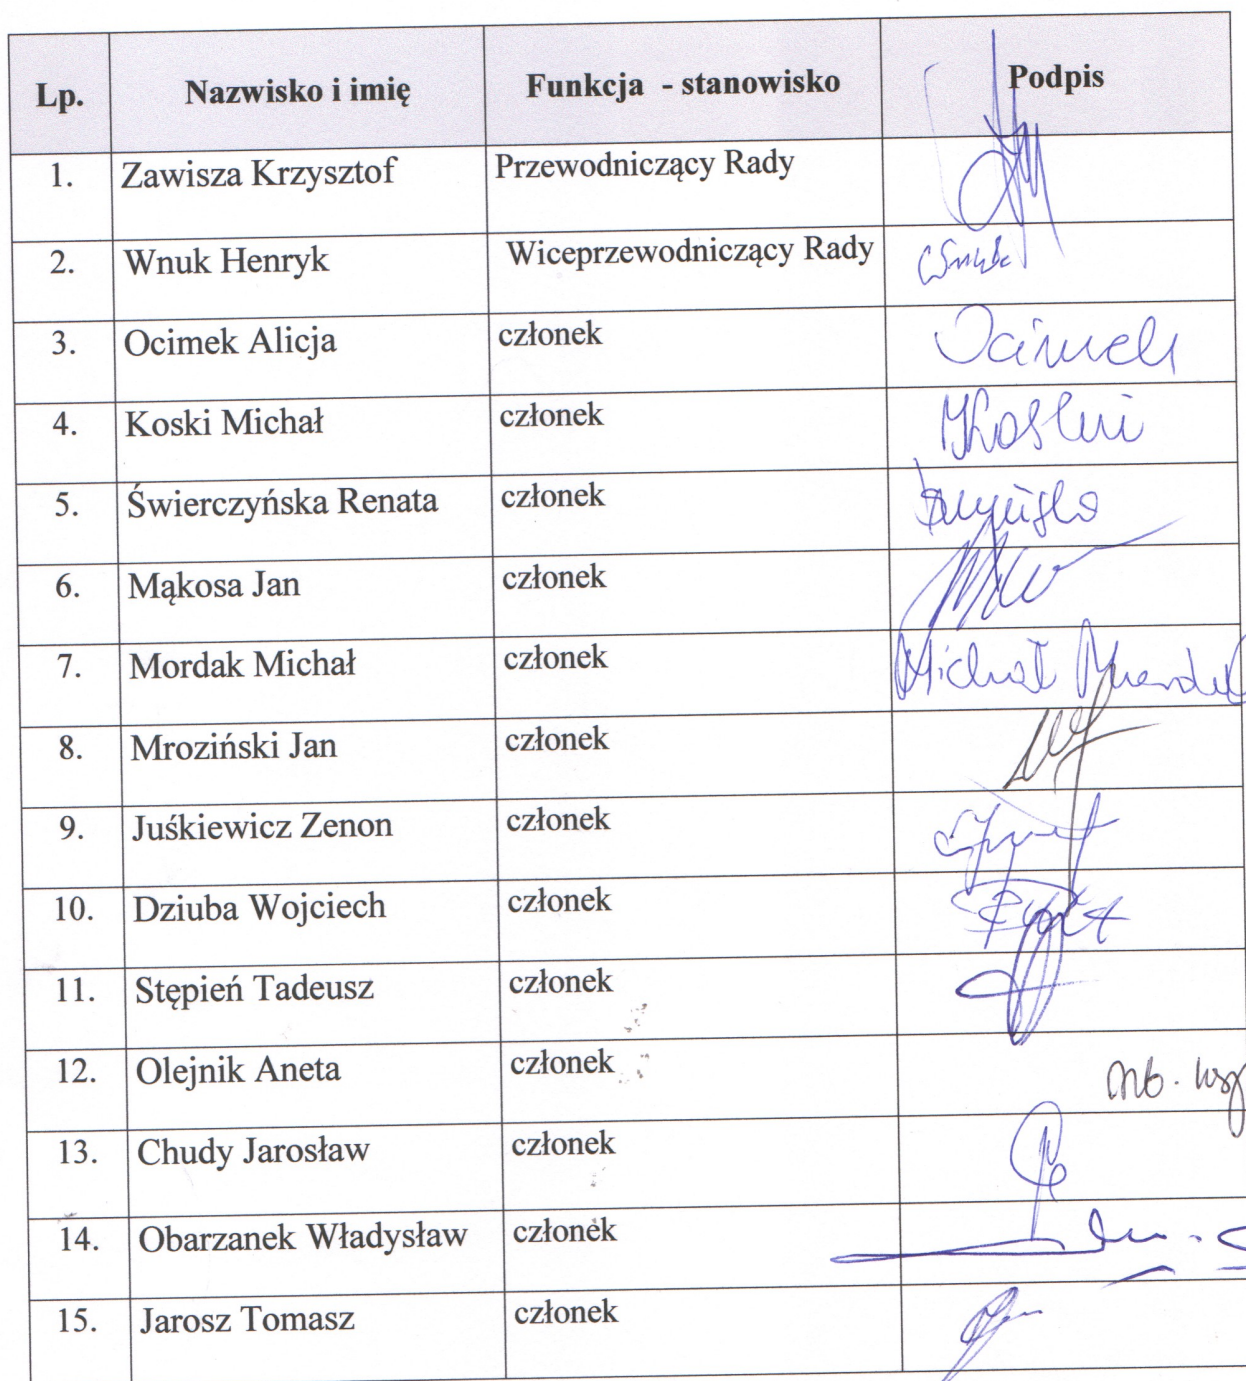 Lp. Nazwisko i imię Funkcja - stanowisko Podpis
1. Zawisza Krzysztof Przewodniczący Rady
2. Wnuk Henryk Wiceprzewodniczący Rady
3. Ocimek Alicja członek Ocimek
4. Koski Michał członek MKoski
5. Świerczyńska Renata członek
6. Mąkosa Jan członek
7. Mordak Michał członek Michał Mordak
8. Mroziński Jan członek
9. Juśkiewicz Zenon członek
10. Dziuba Wojciech członek
11. Stępień Tadeusz członek
12. Olejnik Aneta członek
13. Chudy Jarosław członek
14. Obarzanek Władysław członek
15. Jarosz Tomasz członek